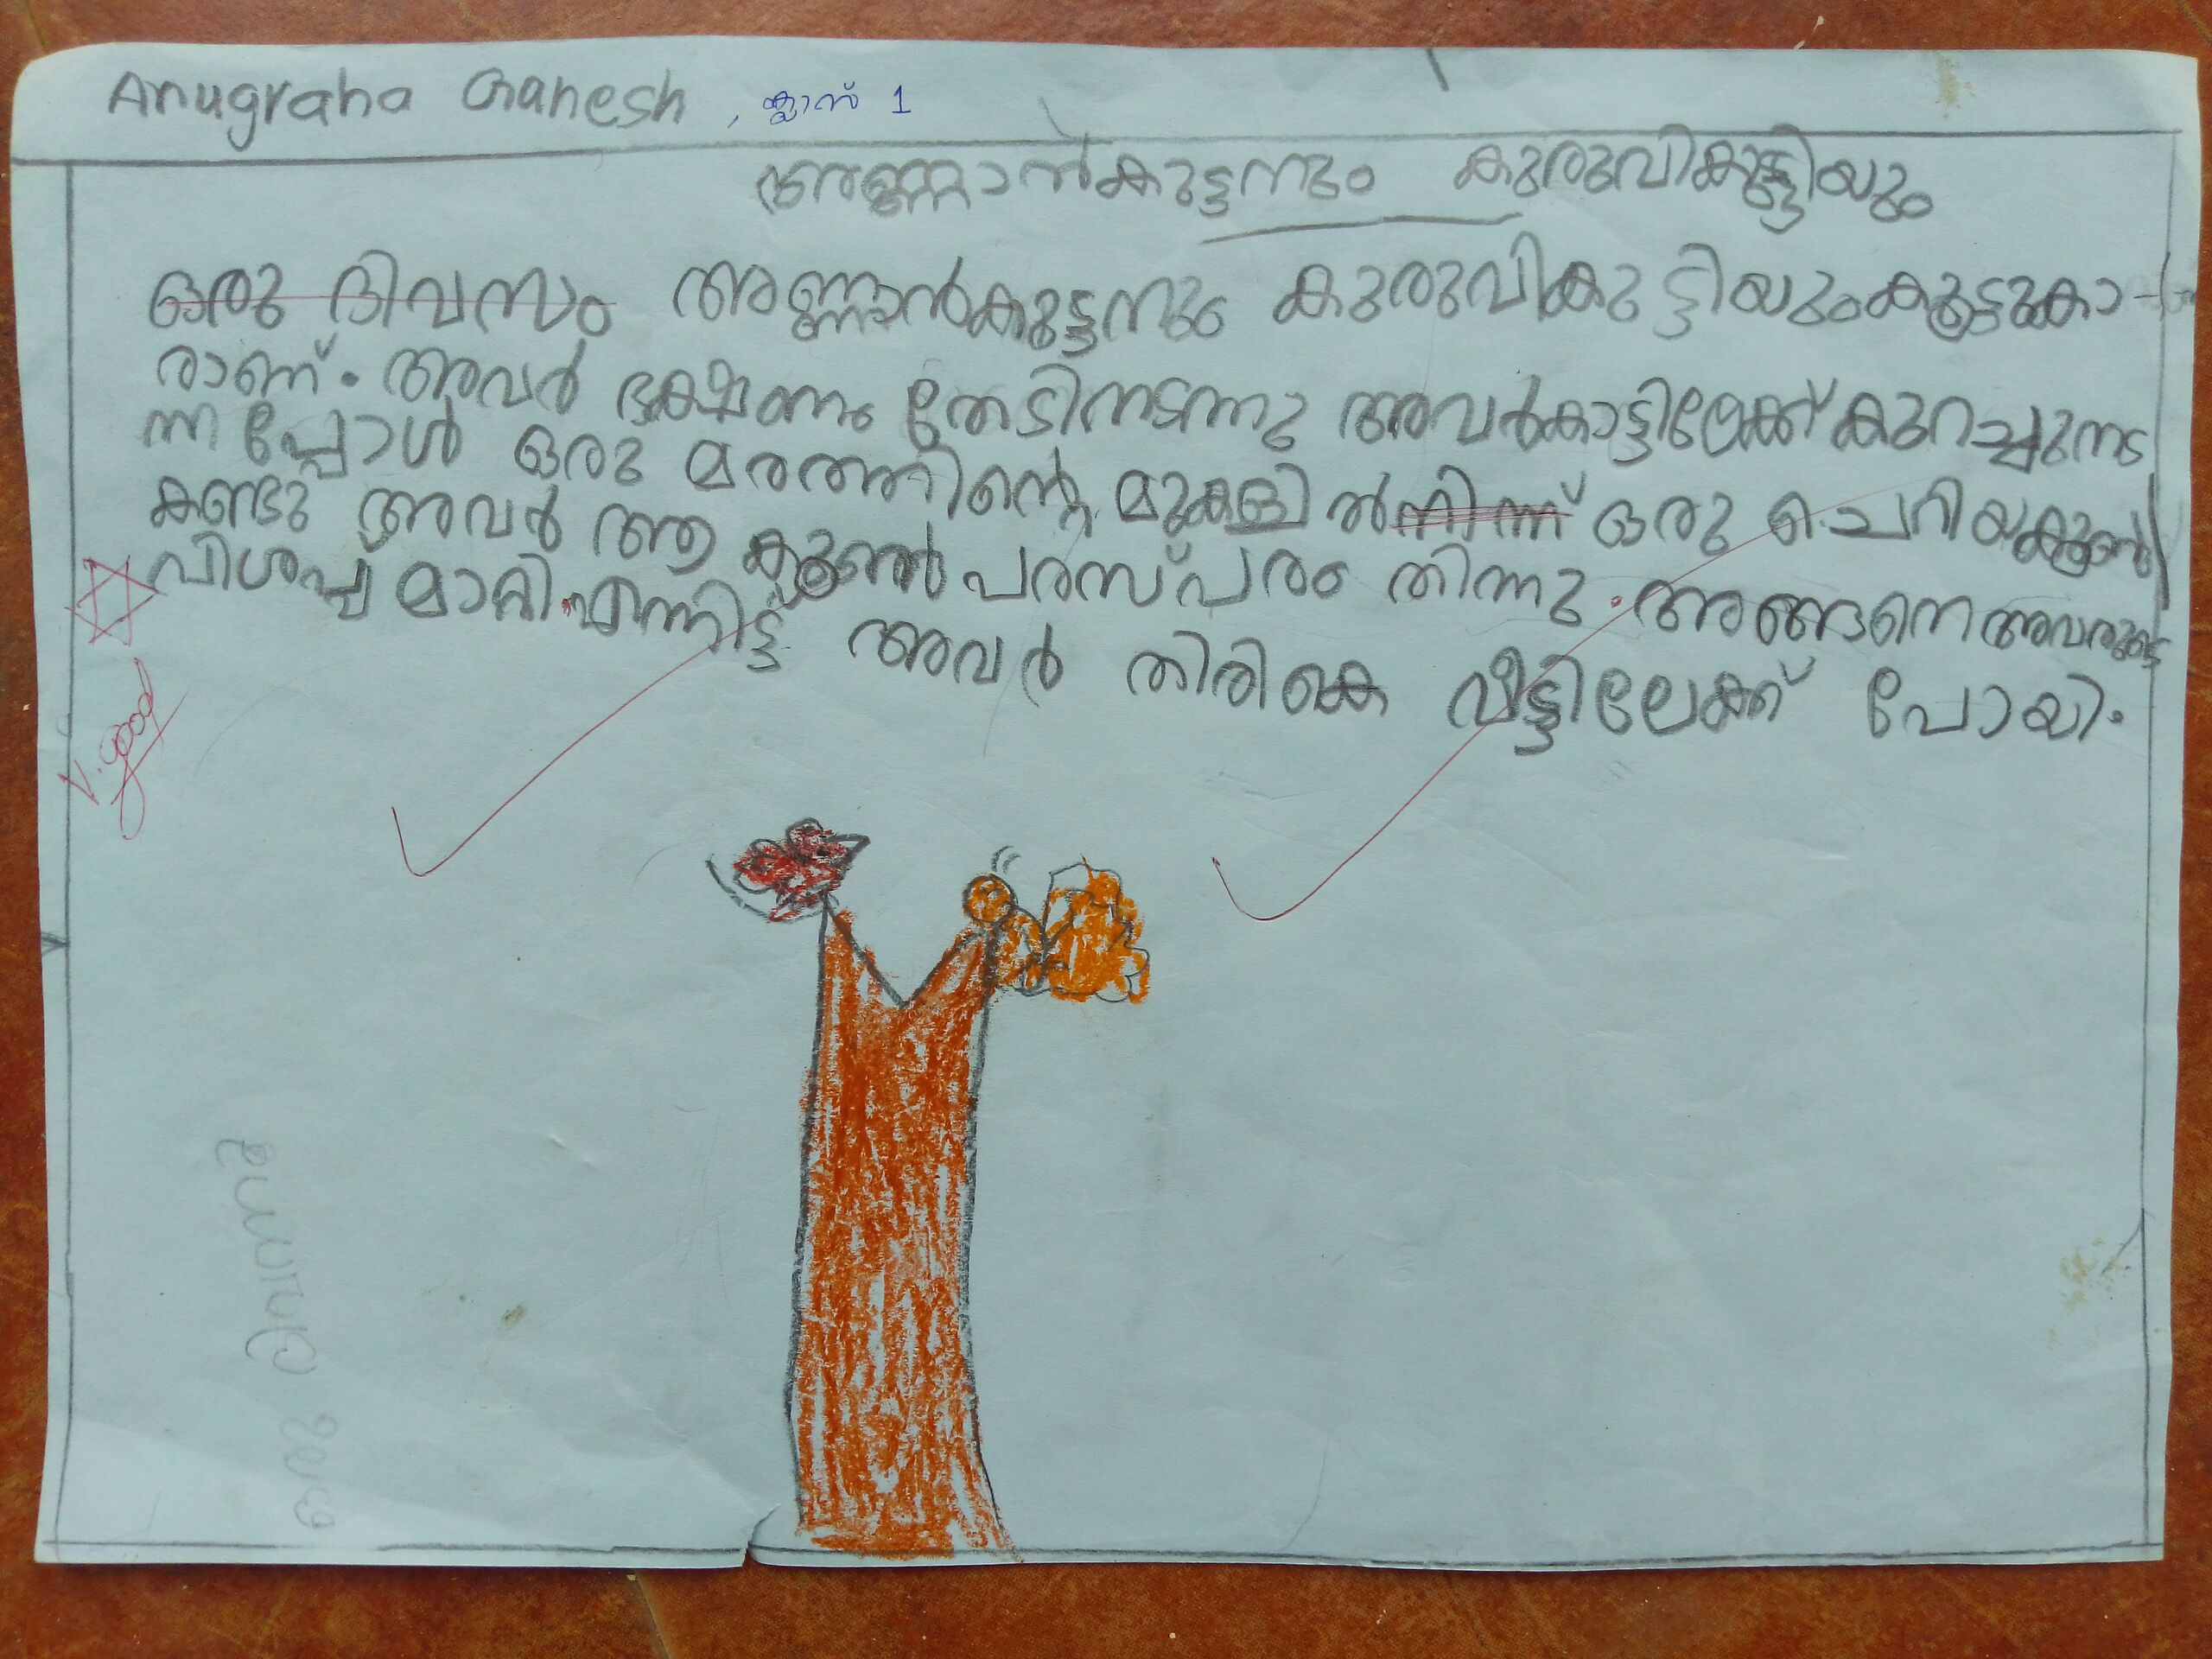 Anugraha Ganesh , ക്ലാസ് 1
അണ്ണാൻകുട്ടനും കുരുവികുട്ടിയും
ഒരു ദിവസം അണ്ണാൻകുട്ടനും കുരുവികുട്ടിയും കൂട്ടുകാ-
രാണ്. അവർ ഭക്ഷണം തേടിനടന്നു അവർകാട്ടിലേക്ക് കുറച്ചുനട
ന്നപ്പോൾ ഒരു മരത്തിന്റെ മുകളിൽനിന്ന് ഒരു ചെറിയകൂൺ
കണ്ടു അവർ ആ കൂൺ പരസ്പരം തിന്നു. അങ്ങനെ അവരുടെ
വിശപ്പ് മാറി. എന്നിട്ട് അവർ തിരികെ വീട്ടിലേക്ക് പോയി.
V. good